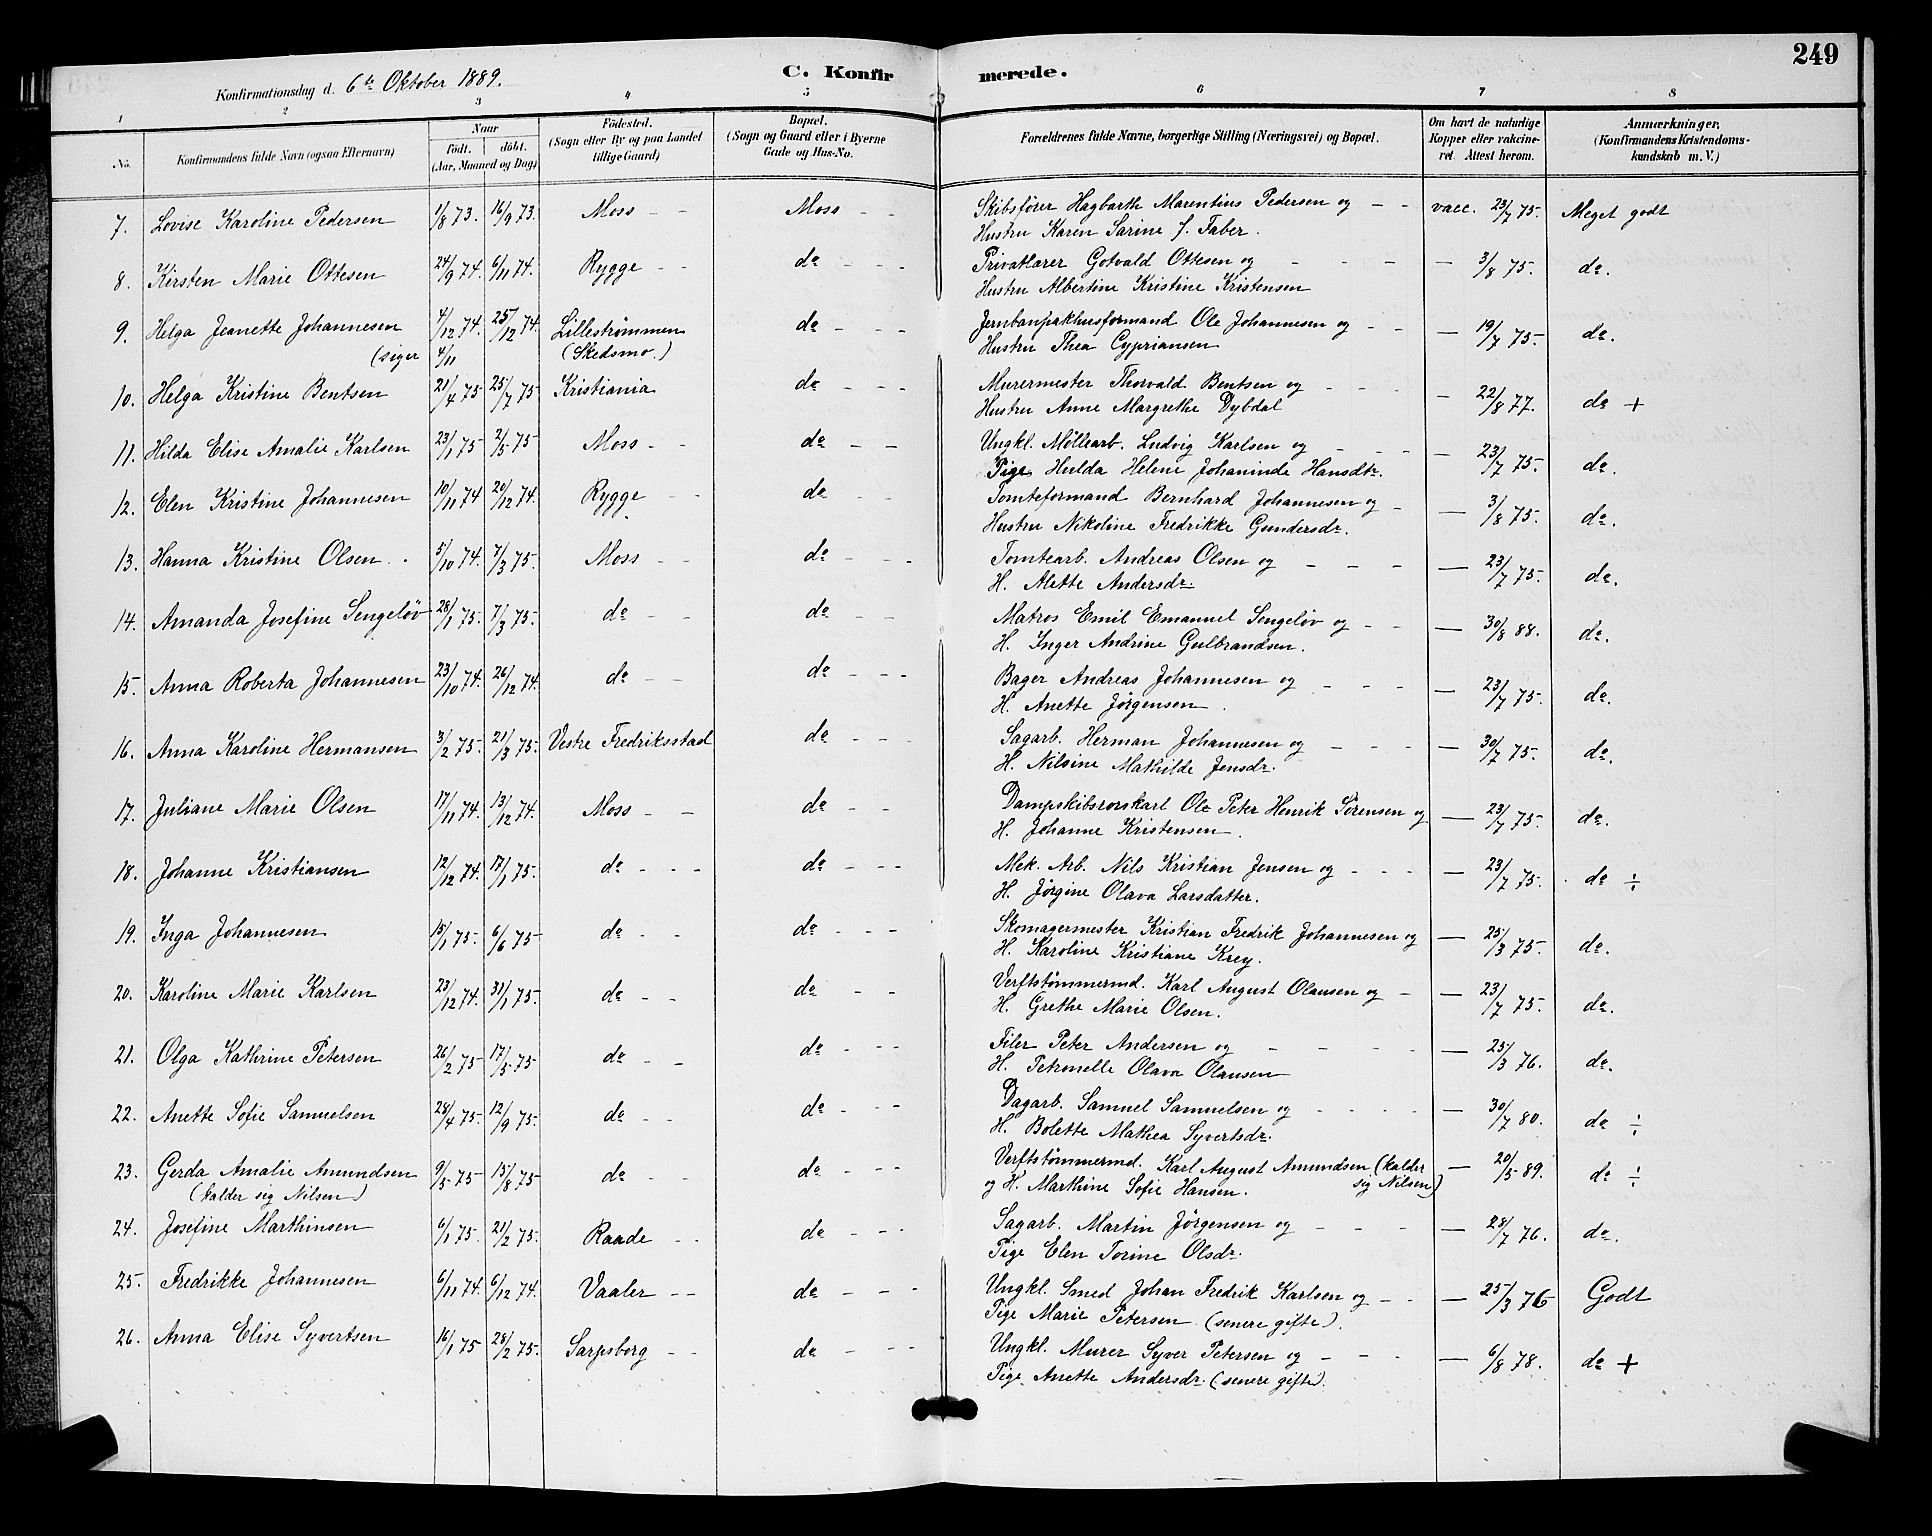 249
Konfirmationsdag d. 6te Oktober 1889.
C. Konfirmerede.
1 2 3 4 5 6 7 8
No.
Konfirmandens fulde Navn (ogsaa Efternavn)
Naar
födt. döbt.
(Aar, Maaned og Dag)
Födested.
(Sogn eller By og paa Landet
tillige Gaard)
Bopæl.
(Sogn og Gaard eller i Byerne
Gade og Hus-No.
Forældrenes fulde Navne, borgerlige Stilling (Næringsvei) og Bopæl.
Om havt de naturlige
Kopper eller vakcine-
ret. Attest herom.
Anmærkninger.
(Konfirmandens Kristendoms-
kundskab m. V.)
7. Lovise Karoline Pedersen 1/8 73. 16/9 73. Moss Moss Skibsfører Hagbarth Marentius Pedersen og vacc. 23/7 75. Meget godt
Hustru Karen Sarine f. Faber.
8. Kirsten Marie Ottesen 24/9 74. 6/11 74. Rygge do Privatlærer Gotvald Ottesen og — 3/8 75. do.
Hustru Albertine Kristine Kristensen
9. Helga Jeanette Johannesen 4/12 74. 25/12 74. Lillestrømmen do Jernbanpakhusformand Ole Johannesen og — 19/7 75. do.
(siger 4/11 (Skedsmo.) Hustru Thea Cypriansen
10. Helga Kristine Bentsen 21/4 75 25/7 75 Kristiania do Murermester Thorvald Bentsen og — 22/8 77. do +
Hustru Anne Margrethe Dybdal
11. Hilda Elise Amalie Karlsen 23/1 75 2/5 75 Moss do Ungkl. Møllearb. Ludvig Karlsen og — 23/7 75. do.
Pige Hulda Helene Johannde Hansdtr.
12. Elen Kristine Johannesen 10/11 74 20/12 74. Rygge do Tomteformand Bernhard Johannesen og — 3/8 75. do.
Hustru Nikoline Fredrikke Gundersdr.
13. Hanna Kristine Olsen 5/10 74. 7/3 75. Moss do Tomtearb. Andreas Olsen og — 23/7 75. do.
H. Alette Andersdr.
14. Amanda Josefine Sengeløv 28/1 75. 7/3 75. do do Matros Emil Emanuel Sengeløv og — 30/8 88. do.
H. Inger Andrine Gulbrandsen.
15. Anna Roberta Johannesen 23/10 74. 26/12 74. do do Bager Andreas Johannesen og — 23/7 75. do.
H. Anette Jørgensen.
16. Anna Karoline Hermansen 3/2 75. 21/3 75. Vestre Fredriksstad do Sagarb. Herman Johannesen og — 30/7 75. do.
H. Nilsine Mathilde Jensdr.
17. Juliane Marie Olsen 17/11 74. 13/12 74. Moss do Dampskibsrorskarl Ole Peter Henrik Sørensen og — 23/7 75. do.
H. Johanne Kristensen.
18. Johanne Kristiansen 12/12 74. 17/1 75. do do Mek. Arb. Nils Kristian Jensen og — 23/7 75. do ÷
H. Jørgine Olava Larsdatter.
19. Inga Johannesen 15/1 75. 6/6 75 do do Skomagermester Kristian Fredrik Johannesen og — 25/3 75. do.
H. Karoline Kristiane Krey.
20. Karoline Marie Karlsen 23/12 74. 31/1 75. do do Verftstømmermd. Karl August Olausen og — 23/7 75. do.
H. Grethe Marie Olsen.
21. Olga Kathrine Petersen 26/2 75 17/5 75 do do Filer Peter Andersen og — 25/3 76. do.
H. Petronelle Olava Olausen
22. Anette Sofie Samuelsen 28/4 75. 12/9 75. do do Dagarb. Samuel Samuelsen og — 30/7 80. do ÷
H. Bolette Mathea Syvertsdr.
23. Gerda Amalie Amundsen 9/5 75 15/8 75 do do Verftstømmermd. Karl August Amundsen (kalder — 20/5 89. do ÷
(kalder sig Nilsen) og H. Marthine Sofie Hansen. sig Nilsen)
24. Josefine Marthinsen 6/1 75. 21/2 75. Raade do Sagarb. Martin Jørgensen og — 28/7 76. do.
Pige Elen Torine Olsdr.
25. Fredrikke Johannesen 6/11 74. 6/12 74. Vaaler do Ungkl. Smed Johan Fredrik Karlsen og — 25/3 76 Godt
Pige Marie Petersen (senere gifte).
26. Anna Elise Syvertsen 16/1 75 28/2 75. Sarpsborg do Ungkl. Murer Syver Petersen og — 6/8 78. do +
Pige Anette Andersdr. (senere gifte).